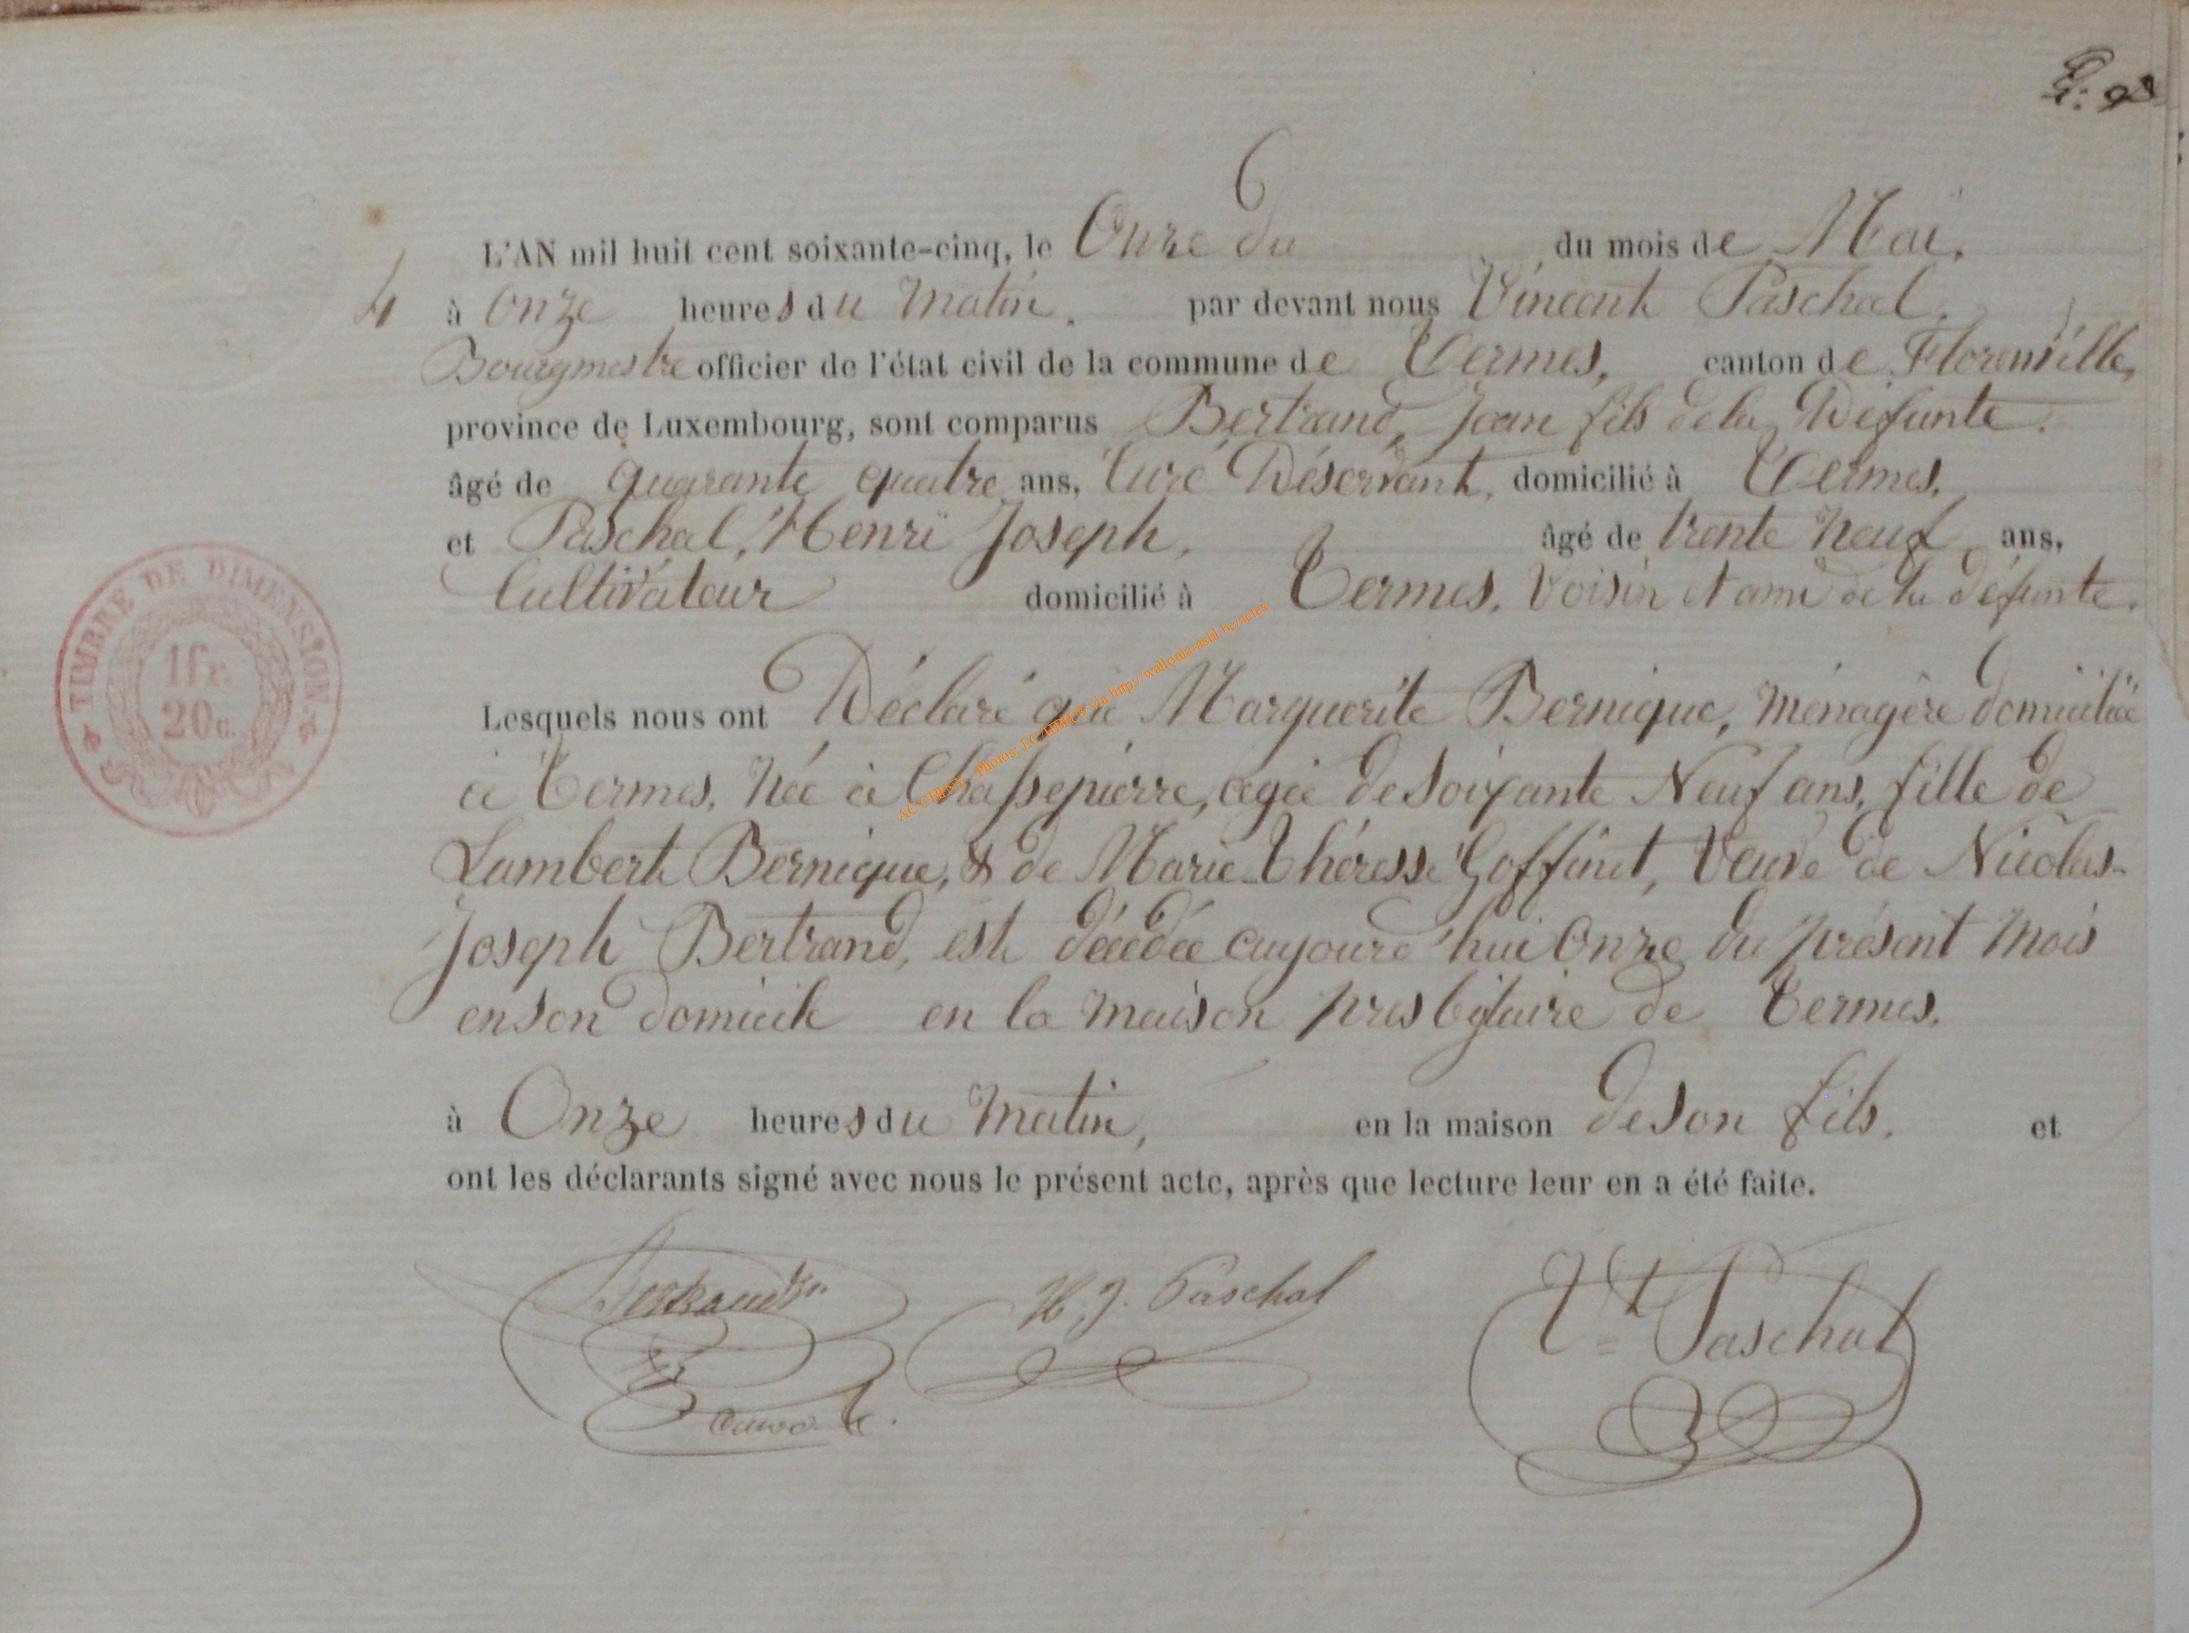 L'AN mil huit cent soixante-cinq, le Onze du du mois de Mai.
4 à Onze heures du Matin. par devant nous Vincent Paschal.
Bourgmestre officier de l'état civil de la commune de Termes, canton de Florenville,
province de Luxembourg, sont comparus Bertrand, Jean fils de la Défunte.
âgé de quarante quatre ans, Curé Déservant, domicilié à Termes,
et Paschal, Henri Joseph, âgé de trente Neuf ans,
Cultivateur domicilié à Termes. Voisin et ami de la défunte.
TIMBRE DE DIMENSION
1fr.
20c.
Lesquels nous ont Déclaré que Marguerite Bernique, Ménagère domiciliée
à Termes, Née à Chassepierre, agée de Soixante Neuf ans, fille de
Lambert Bernique, & de Marie-Théresse Goffinet, Veuve de Nicolas-
Joseph Bertrand, est décédée aujourd'hui Onze du présent Mois
en son domicile en la Maison presbytaire de Termes.
à Onze heures du Matin, en la maison de son fils. et
ont les déclarants signé avec nous le présent acte, après que lecture leur en a été faite.
Bertrand H. J. Paschal Vt Paschal
AC CHINY - Photos J.C. via http://wallonia-asbl.be/actes